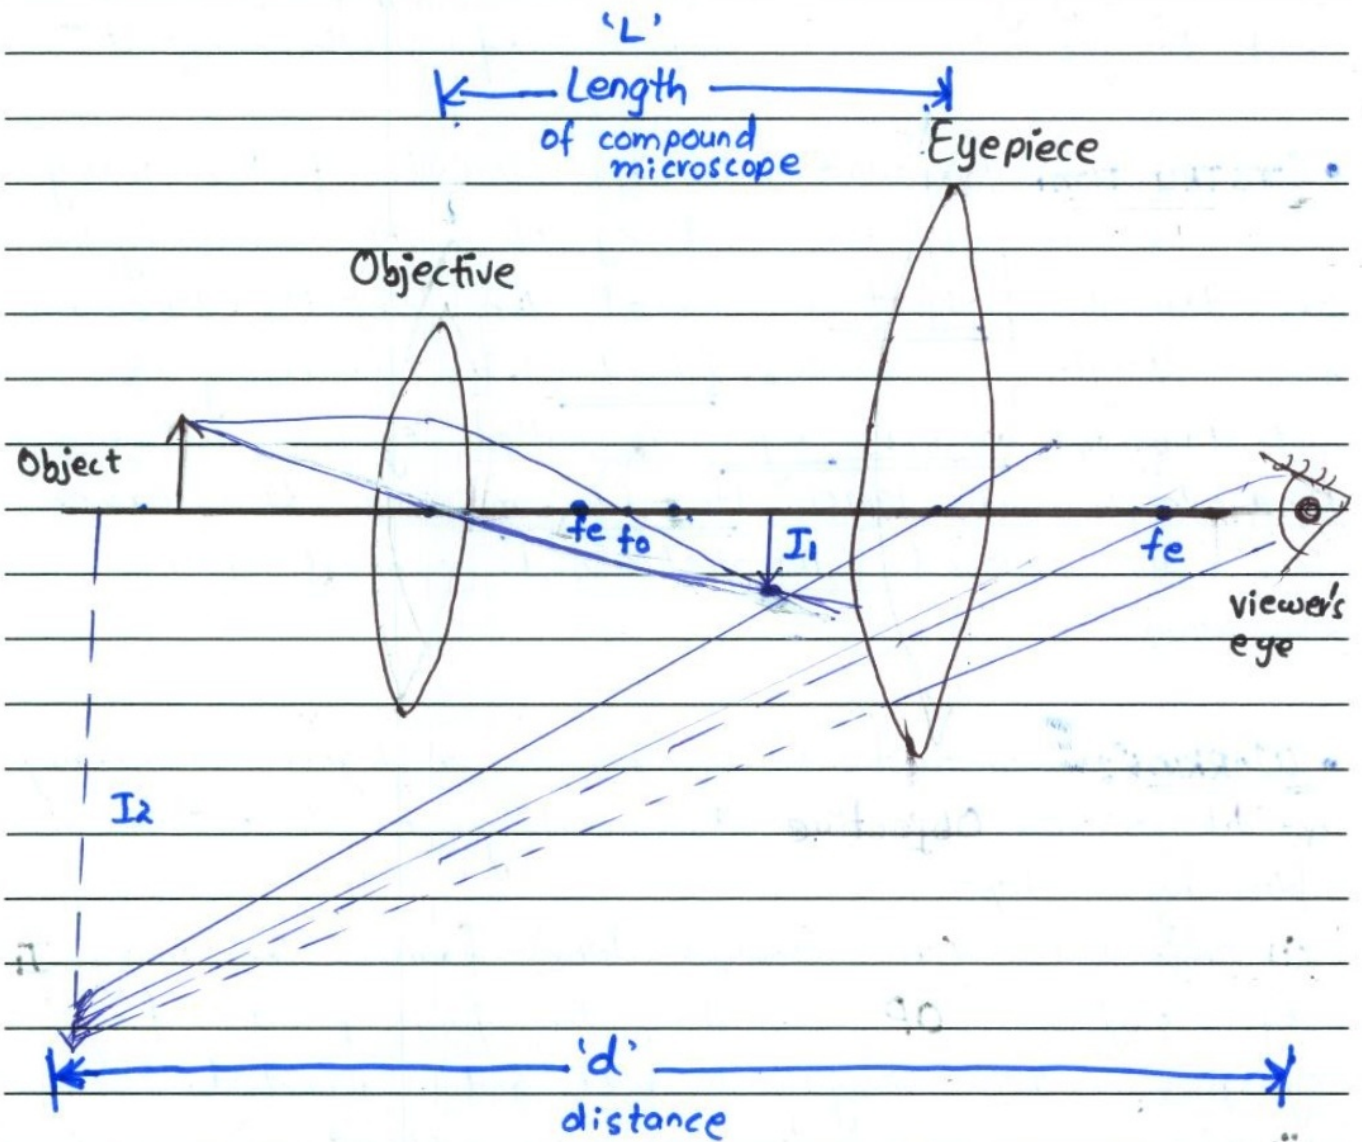 'L'
Length
of compound
microscope
Eyepiece
Objective
Object
fe
fo
I1
fe
viewer's
eye
I2
'd'
distance